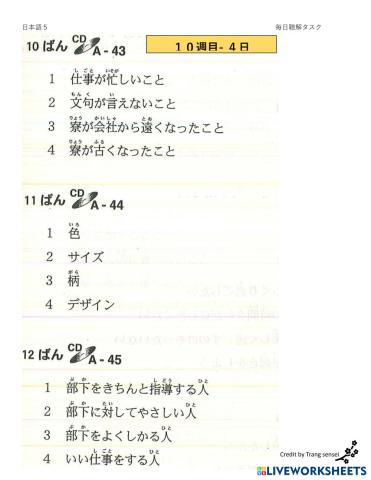 日本語５ 毎日聴解タスク
10ばん CD A-43 １０週目-４日
1 仕事が忙しいこと
2 文句が言えないこと
3 寮が会社から遠くなったこと
4 寮が古くなったこと
11ばん CD A-44
1 色
2 サイズ
3 柄
4 デザイン
12ばん CD A-45
1 部下をきちんと指導する人
2 部下に対してやさしい人
3 部下をよくしかる人
4 いい仕事をする人
Credit by Trang sensei
LIVEWORKSHEETS